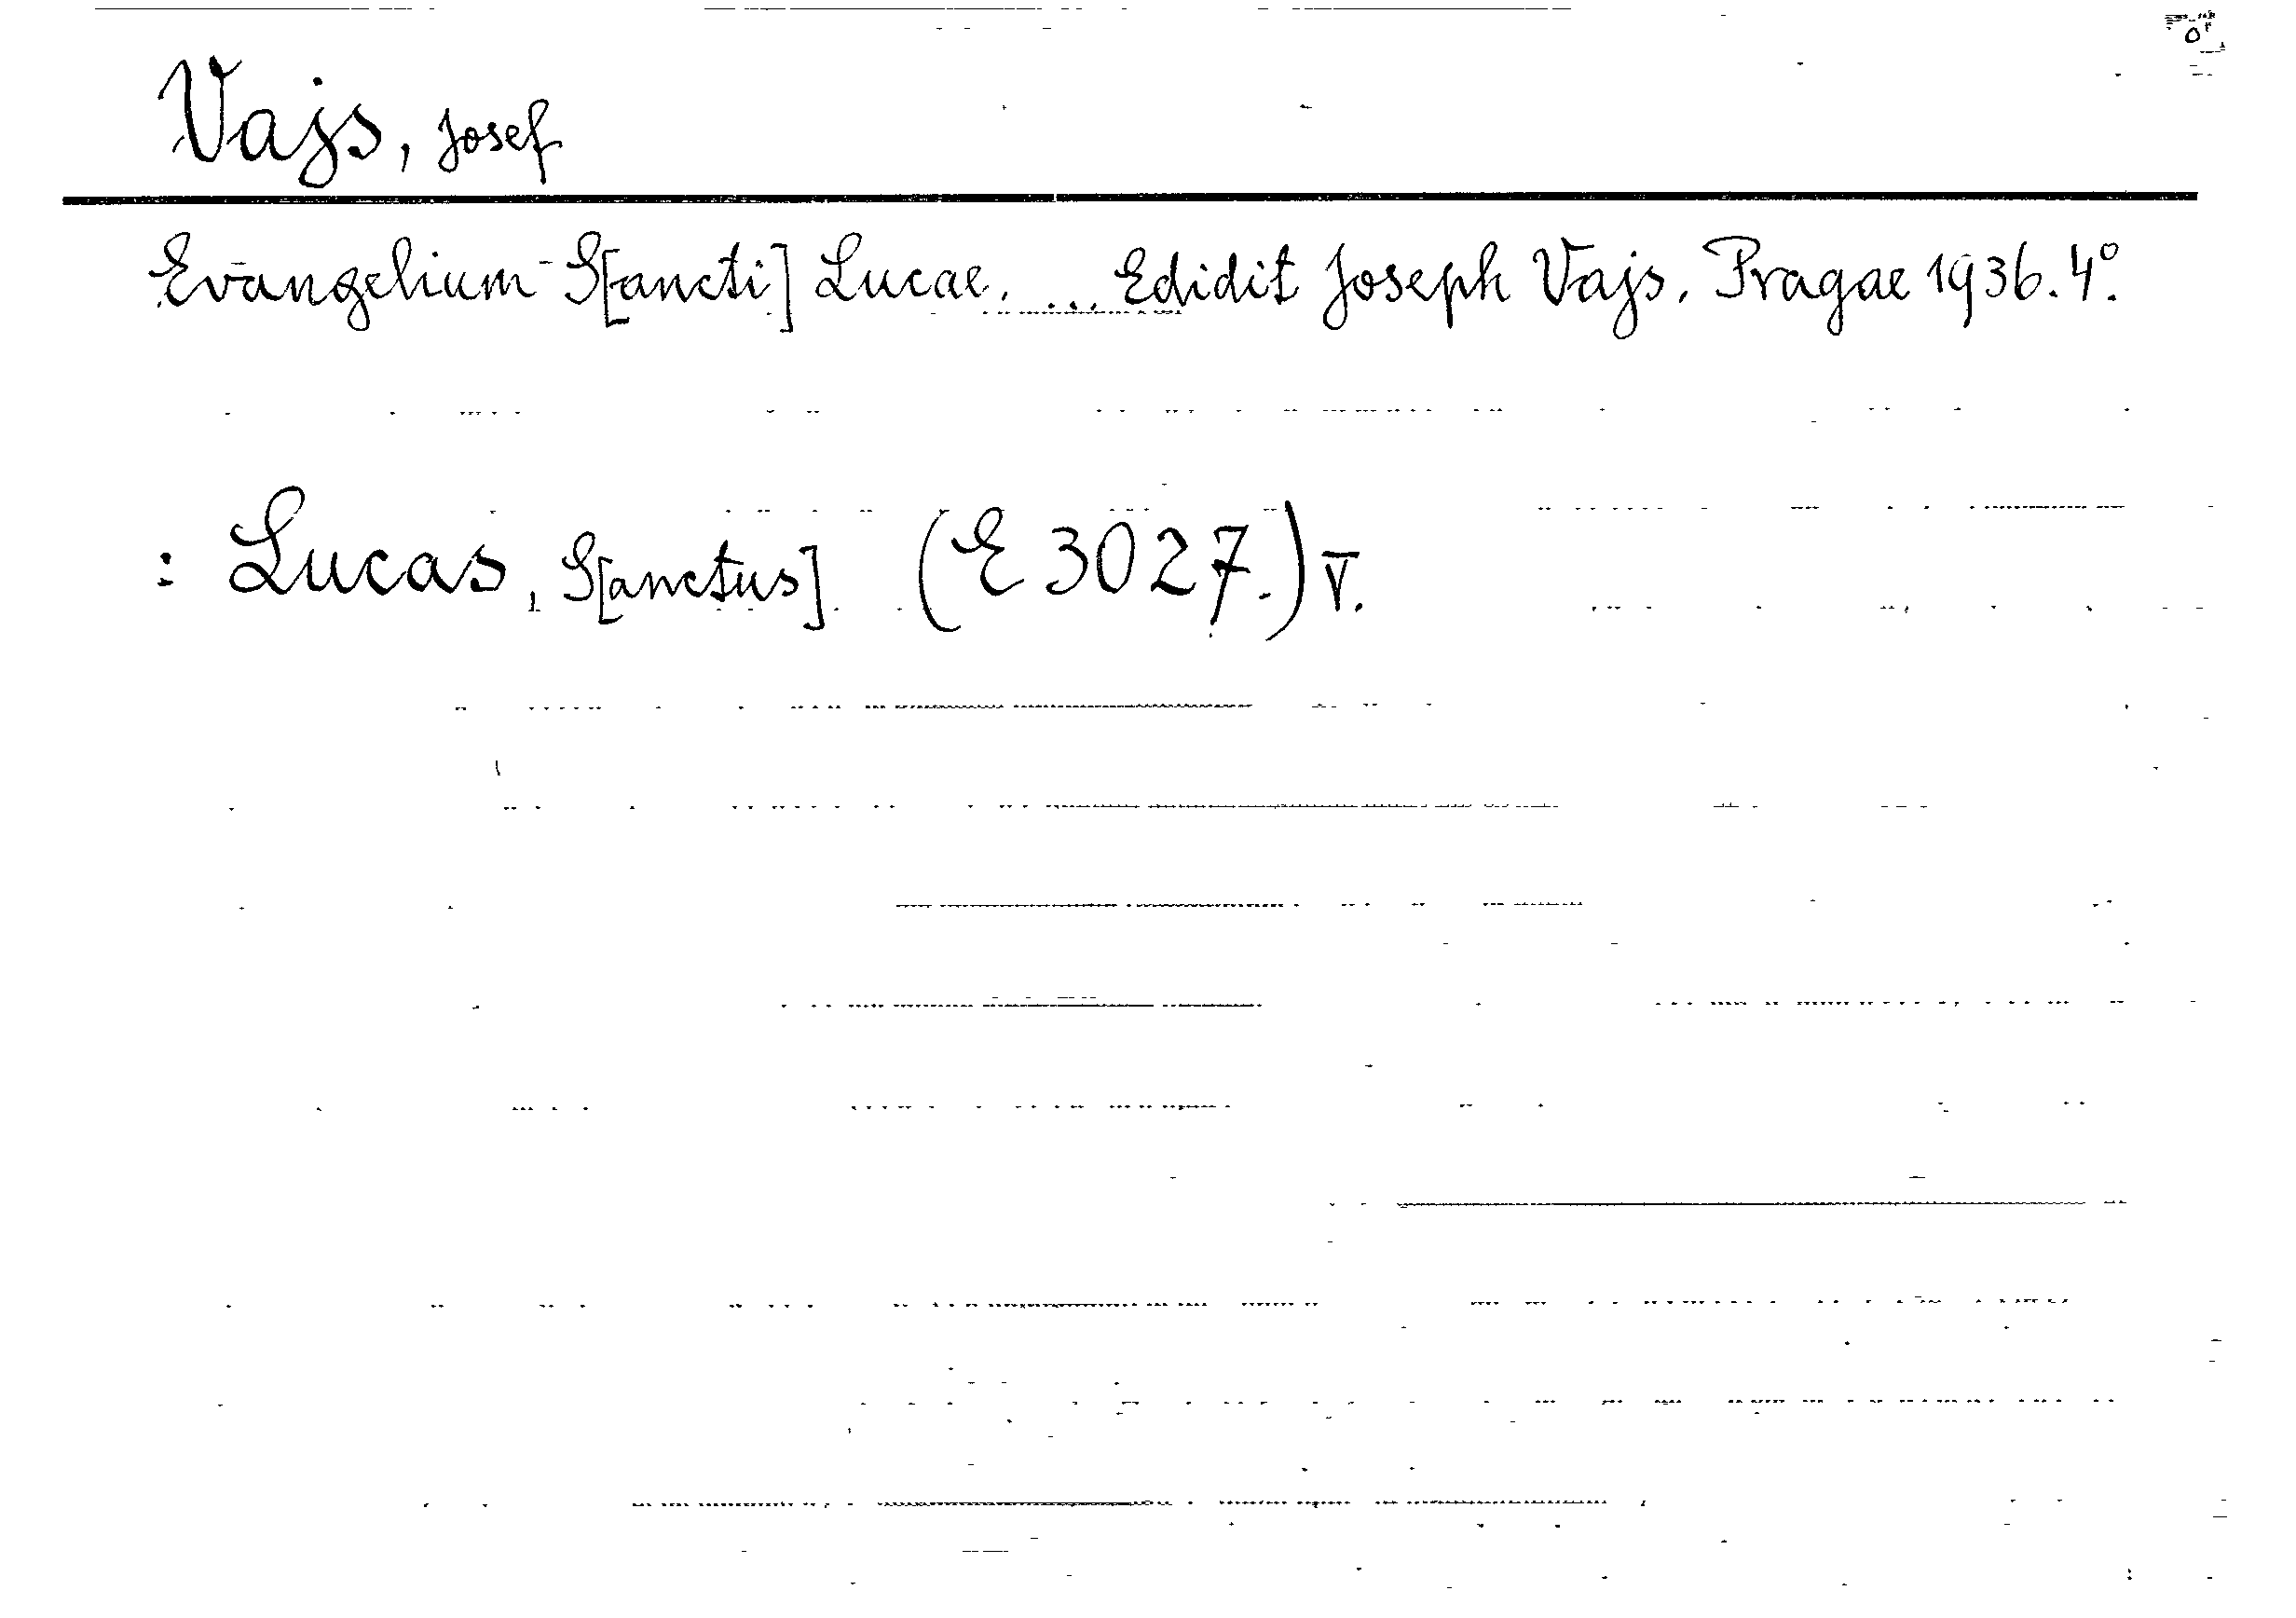 Vajs, Josef
Evangelium S[ancti] Lucae. ... Edidit Joseph Vajs. Pragae 1936. 4°.
: Lucas, S[anctus] (E 3027.) V.